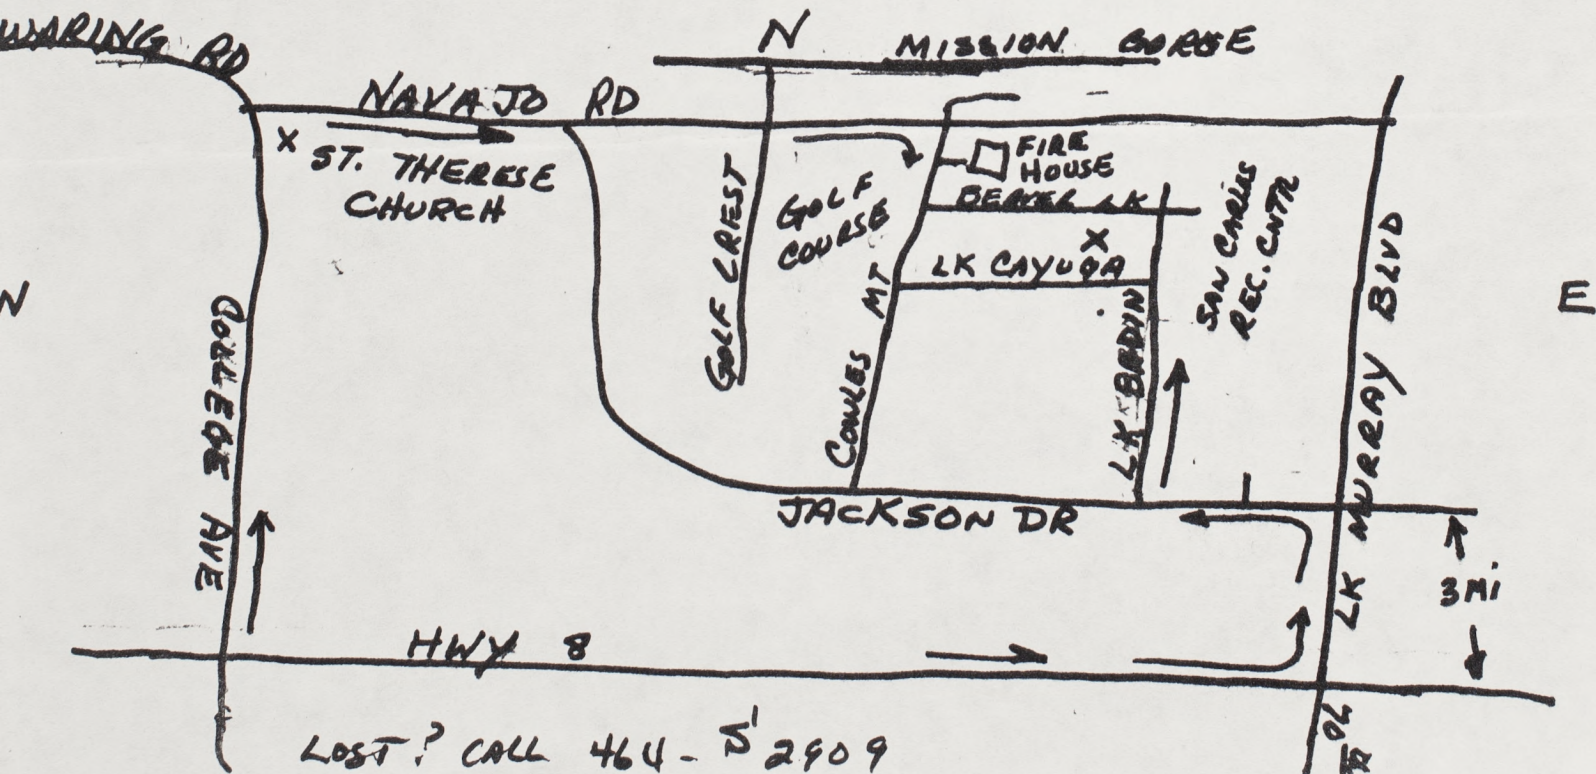 WARING RD
N
MISSION GORGE
NAVAJO RD
X
ST. THERESE
CHURCH
FIRE
HOUSE
BEAVER LK
GOLF
COURSE
GOLF CREST
X
LK CAYUGA
COWLES MT
LK BADIN
SAN CARLOS
REC. CNTR
LK MURRAY BLVD
E
COLLEGE AVE
JACKSON DR
3 Mi
HWY 8
70
LOST? CALL 464-
2909